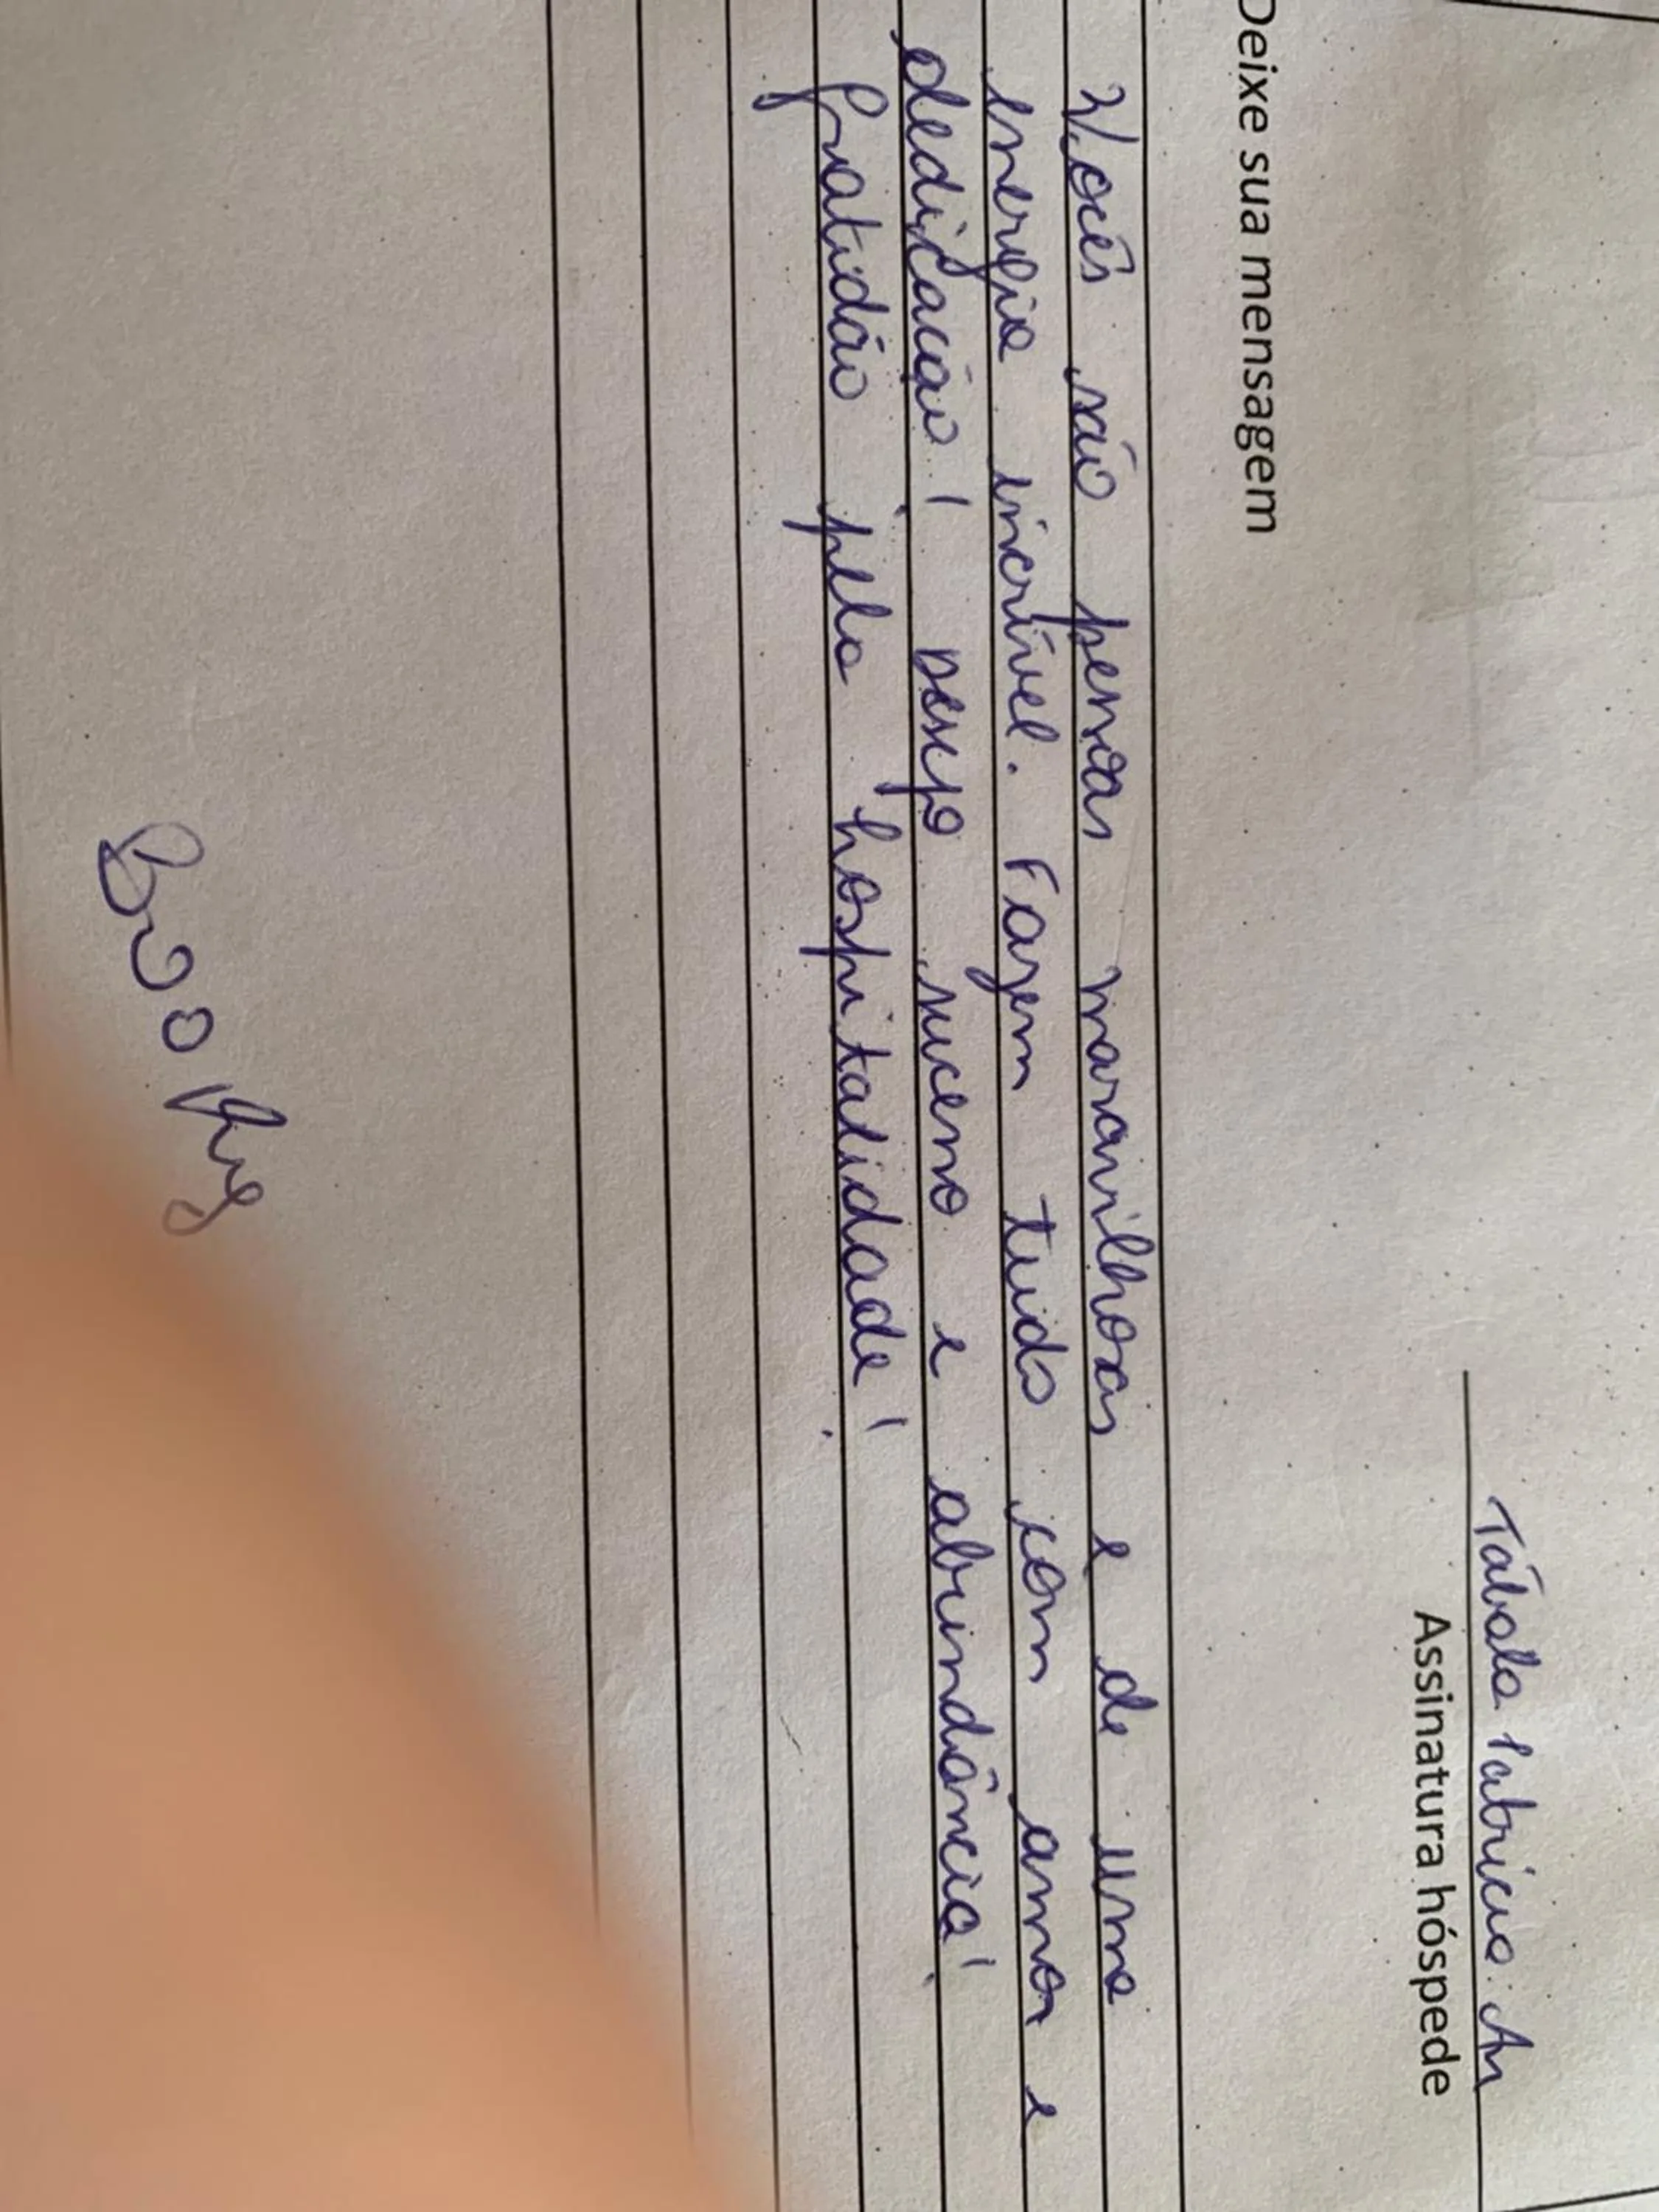 Tábala Patrícia
Assinatura hóspede
Deixe sua mensagem
Vocês são pessoas maravilhosas e de uma
energia incrível. Fazem tudo com amor e
dedicação! Desejo sucesso e abundância!
Gratidão pela hospitalidade!